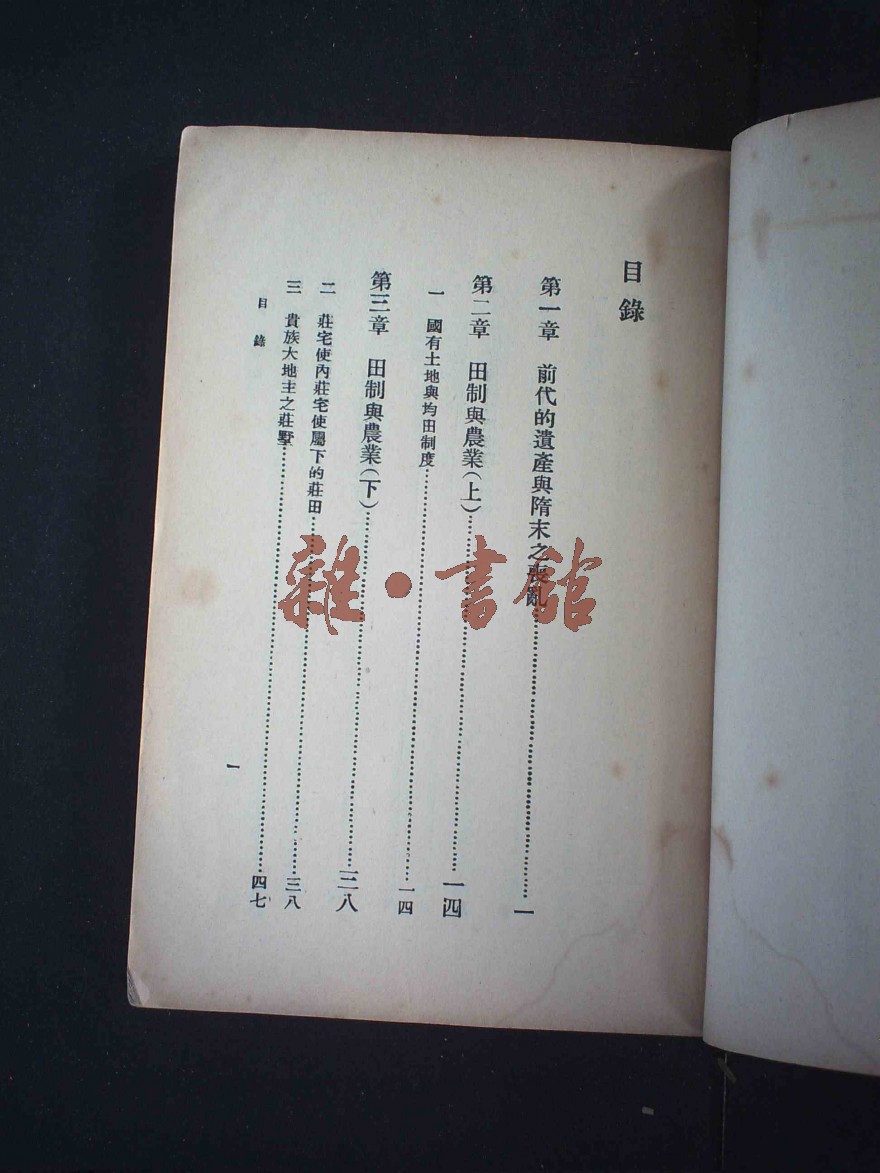 目錄
第一章　前代的遺產與隋末之喪亂……一
第二章　田制與農業（上）……一四
一　國有土地與均田制度……一四
第三章　田制與農業（下）……三八
二　莊宅使內莊宅使屬下的莊田……三八
三　貴族大地主之莊墅……四七
目錄
一
雜·書館